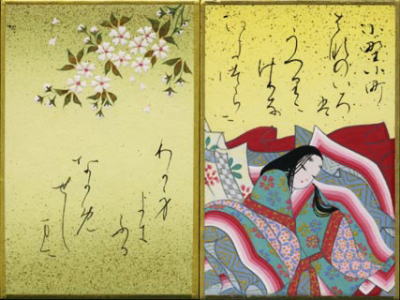 小野小町
花のいろは
うつりに
けりな
いたつらに
わか身
よに
ふる
なか免
せし
まに